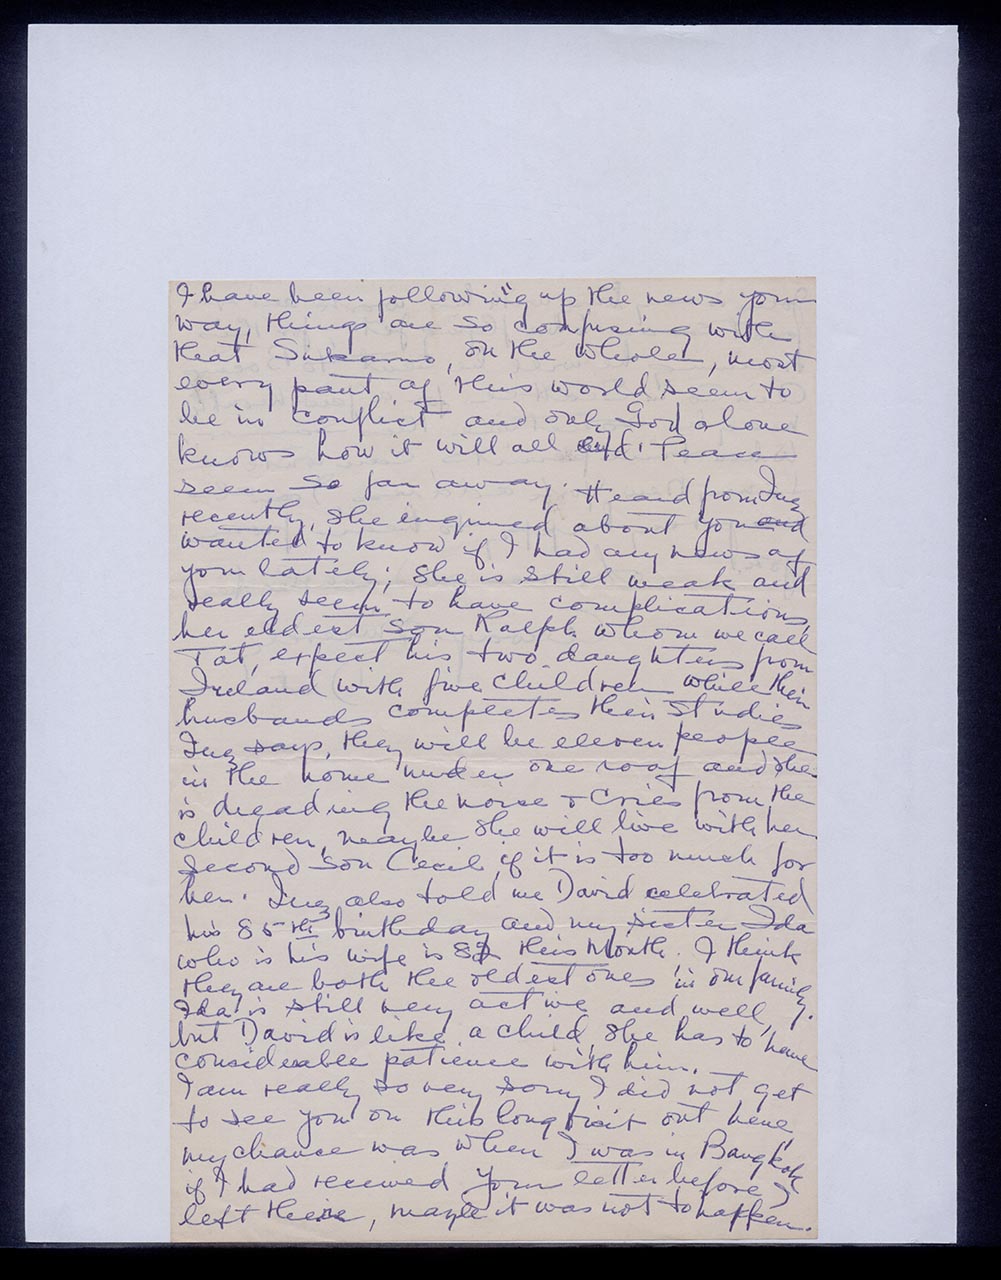 I have been following up the news your
way, things are so confusing with
that Sukarno, on the whole, most
every part of this world seem to
be in conflict and only God alone
knows how it will all end! Peace
seem so far away. Heard from Inez
recently, she enquired about you and
wanted to know if I had any news of
you lately; she is still weak and
really seem to have complications,
her eldest son Ralph whom we call
Tat, expect his two daughters from
Ireland with five children while their
husbands completes their studies
Inez says, they will be eleven people
in the home under one roof and she
is dreading the noise & cries from the
children, maybe she will live with her
second son Cecil, if it is too much for
her. Inez also told me David celebrated
his 85th birthday and my sister Ida
who is his wife is this Month. I think
they are both the oldest ones in our family.
Ida is still very active and well,
but David is like a child, she has to have
considerable patience with him.
I am really so very sorry I did not get
to see you on this long visit out here,
my chance was when I was in Bangkok
if I had received your letter before I
left there, maybe it was not to happen.